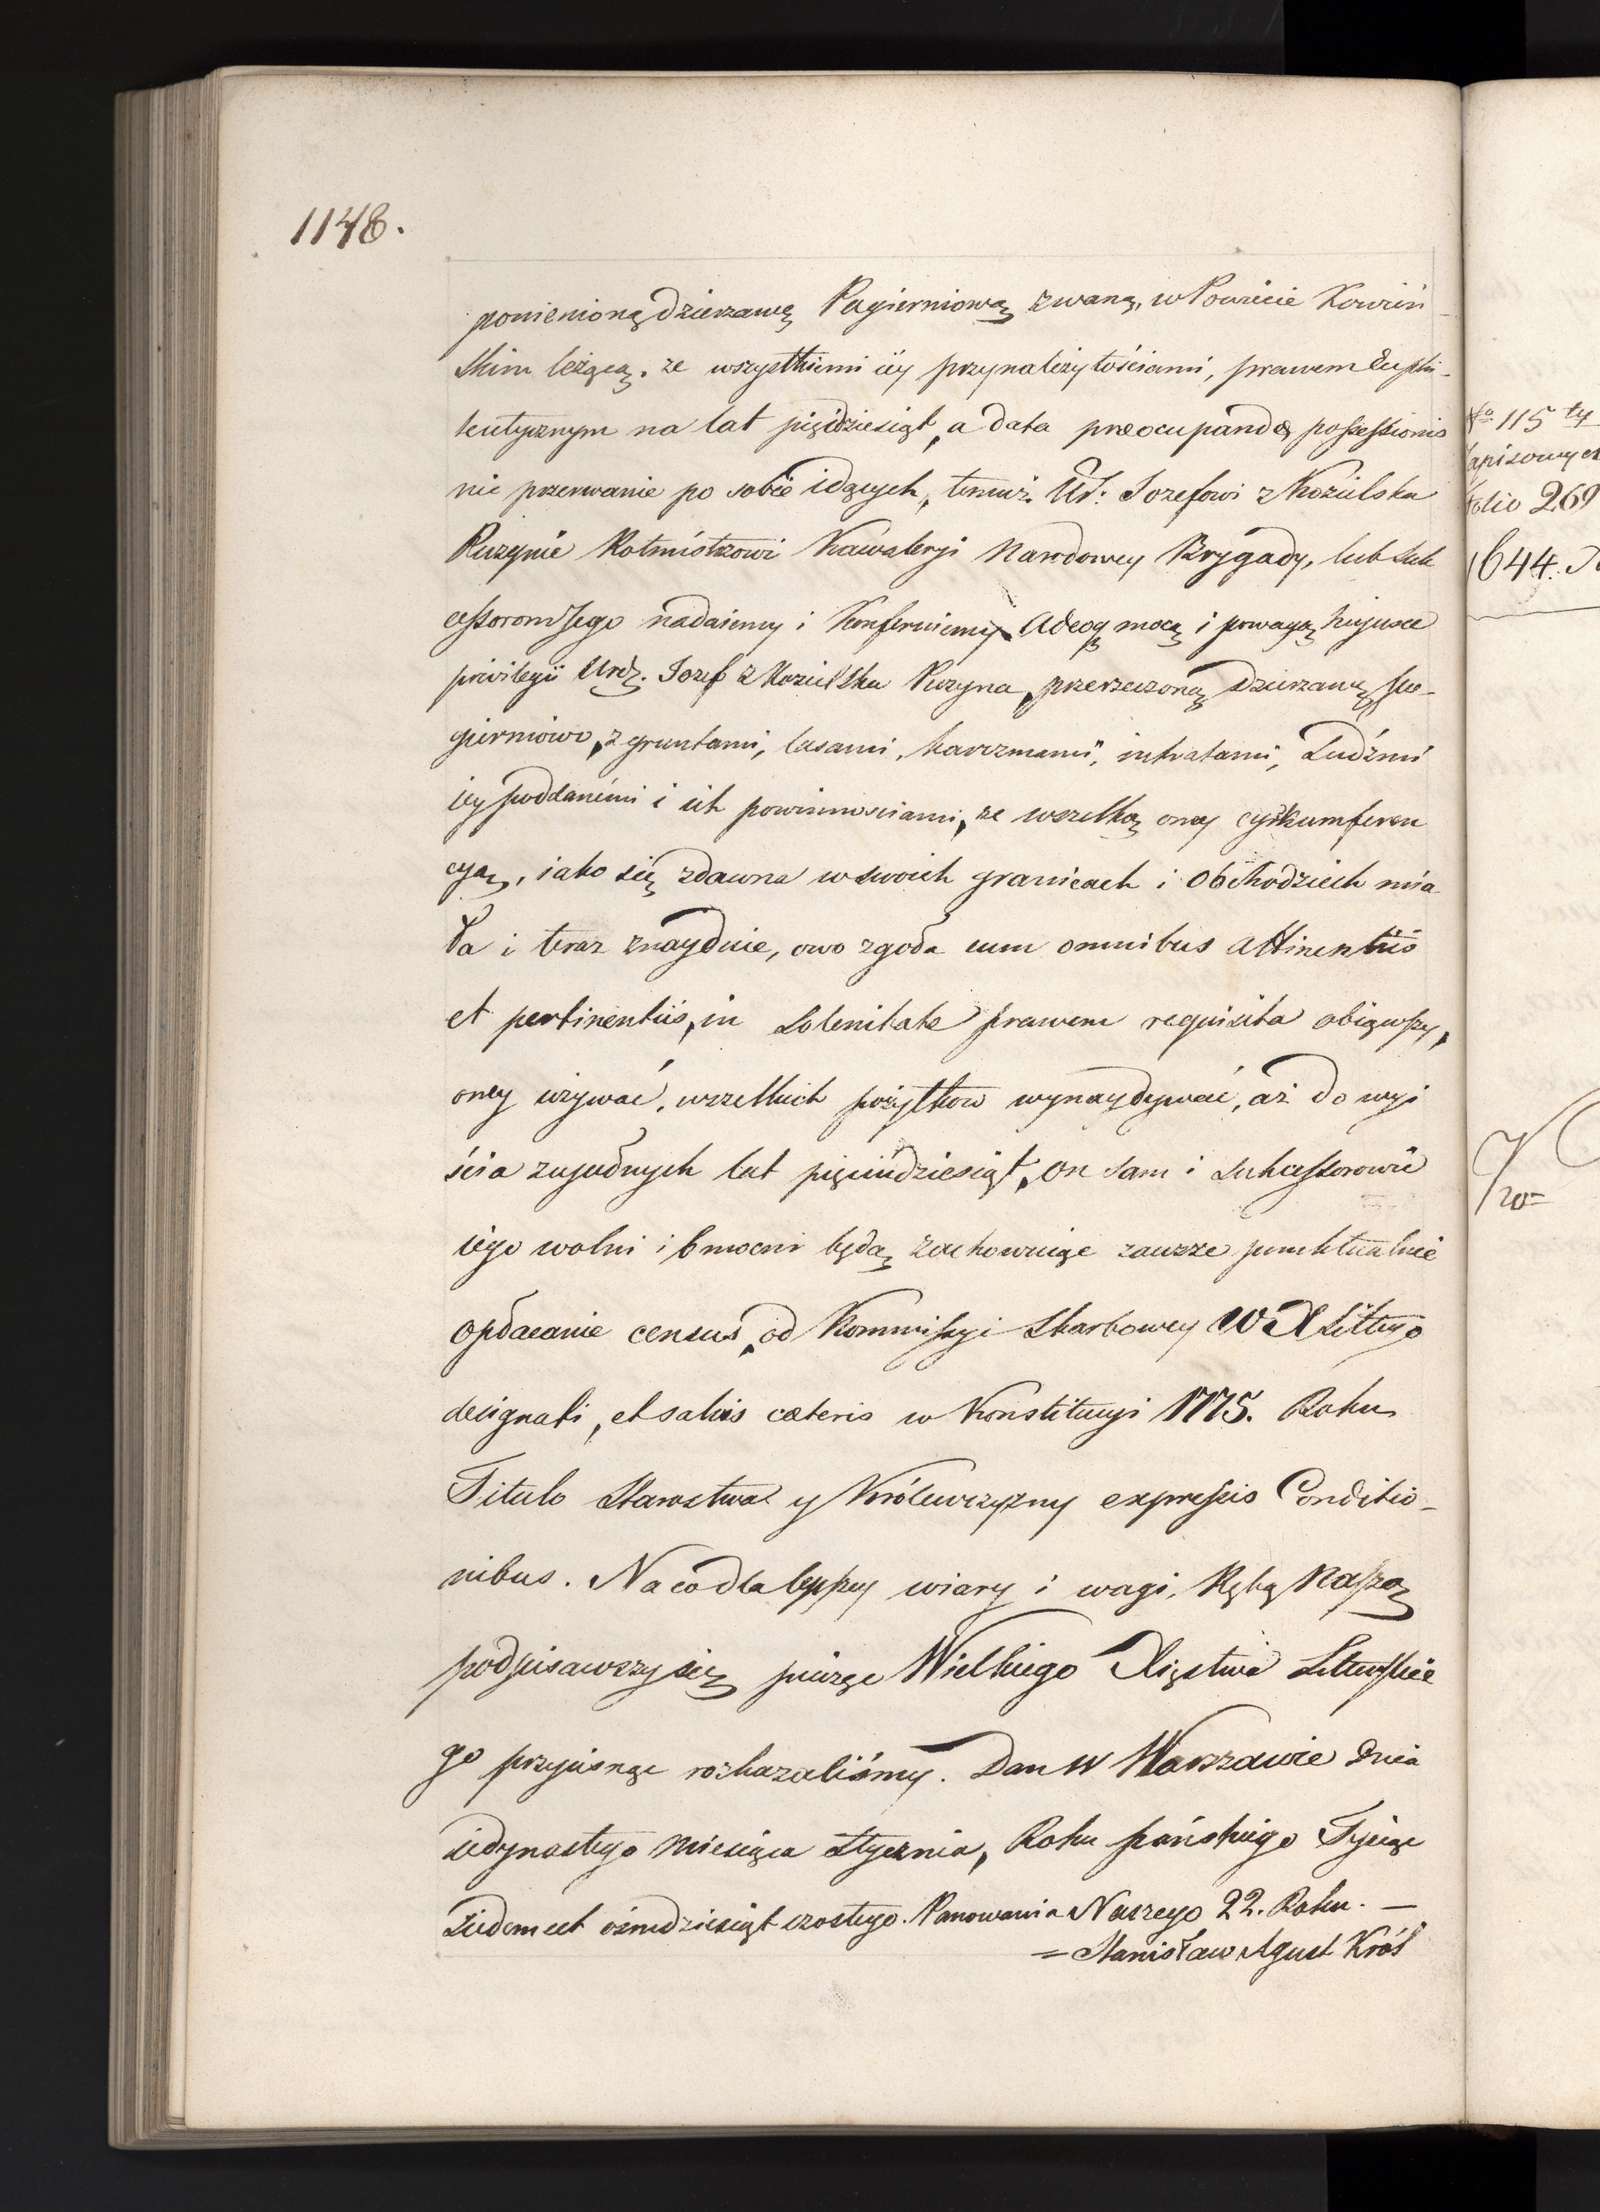 1148.
pomienioną dzierzawę Pagierniową zwaną, w Powiecie Kowień
skim leżącą. ze wszystkiemi iey przynależytościami, prawem Emphi-
teutycznym na lat pięćdziesiąt, a data præocupandæ possessionis
nie przerwanie po sobie idących, temuż Ur: Jozefowi z Kozielska
Puzynie Rotmistrzowi Kawaleryi Narodowey Brygady, lub Suk
cessorom Jego nadaiemy i Konferuiemy. Adeoq mocą i powagą hujusce
privilegii Urdz. Jozef z Kozielska Puzyna, przerzeczoną Dzierzawę Pa-
gierniowo, z gruntami, lasami, karczmami, intratami, Ludźmi
iey poddanémi i ich powinnosciami, ze wszelką oney cyrkumferen
cyą, iako się zdawna w swoich granicach i obchodziech mia
ła i teraz znayduie, owo zgoła cum omnibus attinentiis
et pertinentiis, in Solenitate prawem requisita obiąwszy,
oney używać, wszelkich pożytkow wynaydywać, aż do wyi
ścia zupełnych lat pięciudziesiąt, on sam i sukcessorowie
iego wolni i mocni będą zachowuiąc zawsze punktualnie
opłacanie census, od Kommissyi Skarbowey W X Littego
designati, et salvis cæteris w Konstitucyi 1775. Roku
Titulo Starostwa y Królewszyzny expressis Conditio-
nibus. Na co dla lepszey wiary i wagi, Ręką Naszą
podpisawszy się pieczęć Wielkiego Xięstwa Litewskie
go przycisnąć rozkazaliśmy. Dan w Warszawie Dnia
iedynastego Miesiąca Stycznia, Roku pańskiego Tysiąc
Siedmset ośmdziesiąt szostego. Panowania Naszego 22. Roku. —
= Stanisław Agust Król
115 ty
folio 269
644.